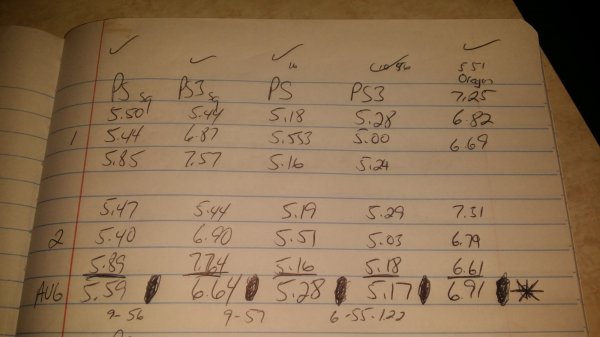 16 10/46 551
Oregon
PS sq PS3 sq PS PS3 7.25
5.50 5.44 5.18 5.28 6.82
1 5.44 6.87 5.553 5.00 6.69
5.85 7.57 5.16 5.24
5.47 5.44 5.19 5.29 7.31
2 5.40 6.90 5.51 5.03 6.79
5.89 7.64 5.16 5.18 6.61
AVG 5.59 6.64 5.28 5.17 6.91
9-56 9-57 6-55-122